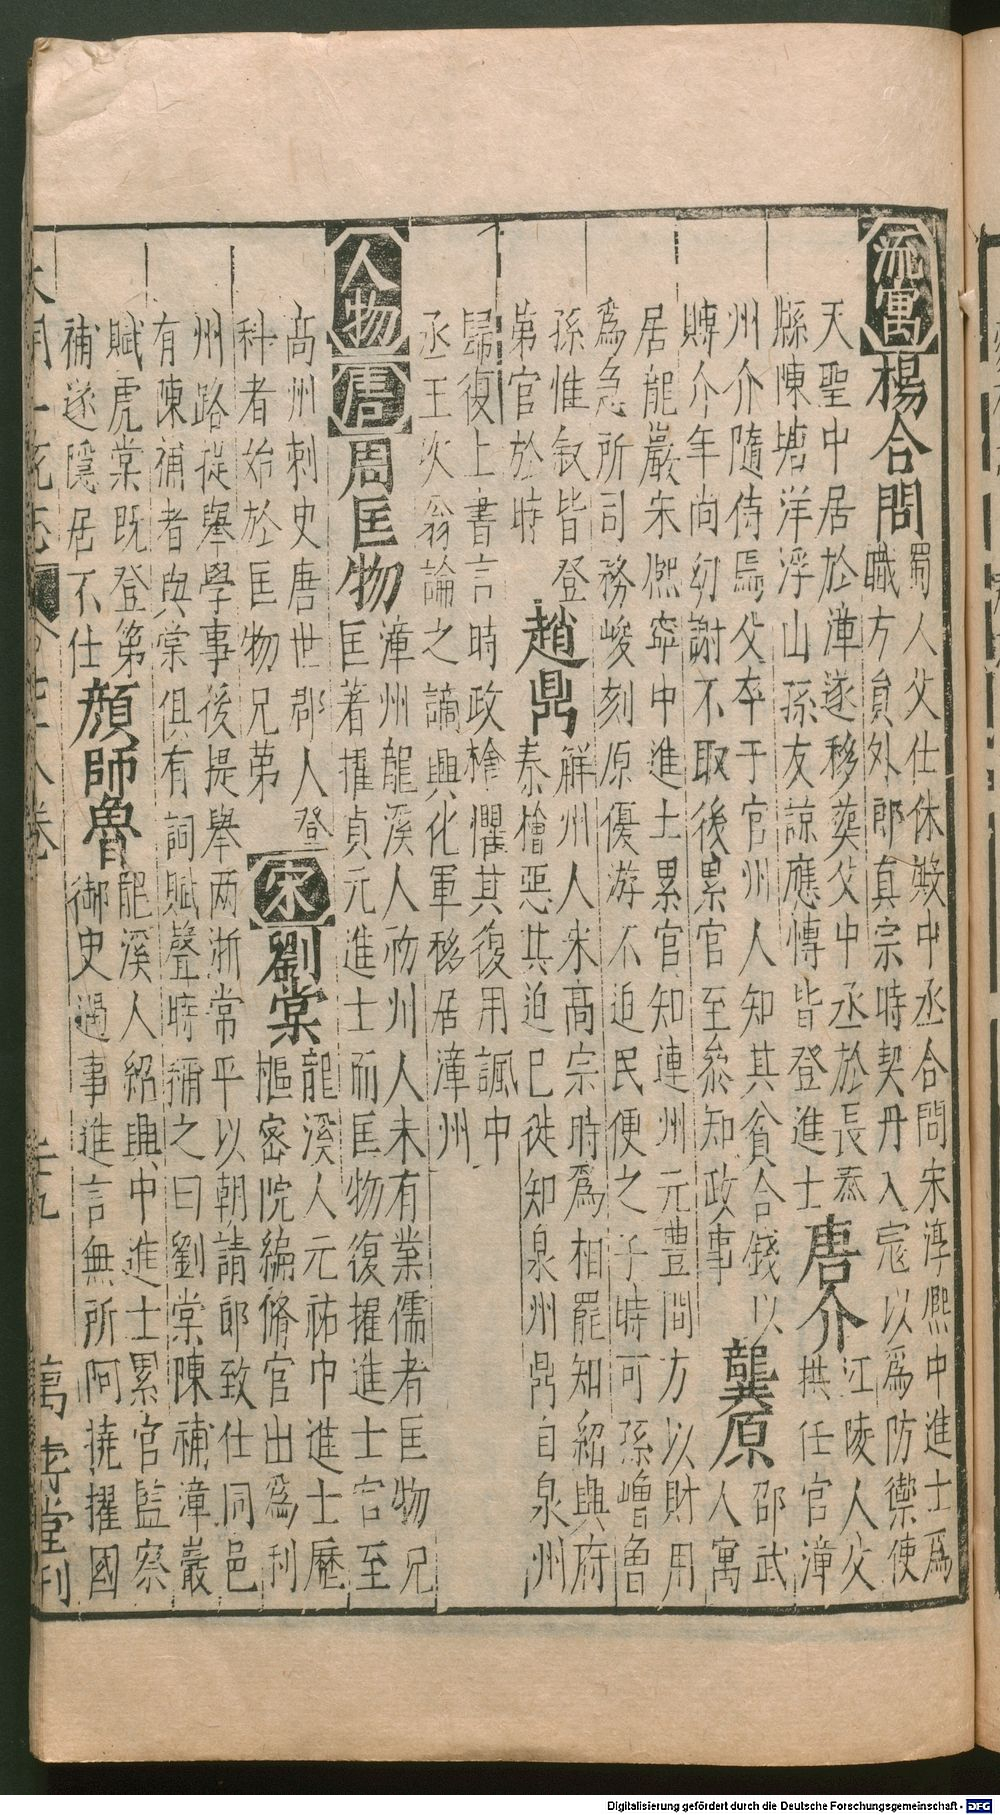 流寓 楊合問 蜀人父仕休漵中丞合問宋淳熈中進士爲
職方貟外郎真宗時契丹入冦以爲防禦使
天聖中居於漳遂移葬父中丞於長泰
縣陳塘洋浮山孫友諒應慱皆登進士 唐介 江陵人父
拱任官漳
州介隨侍焉父卒于官州人知其貧合錢以
賻介年尚幻謝不取後累官至叅知政事 龔原 邵武
人寓
居龍巖宋熈寧中進士累官知連州元豊間方以財用
爲急所司務峻刻原優游不迫民便之子時可孫嶒魯
孫惟叙皆登
第官於時 趙鼎 解州人宋高宗時爲相罷知紹興府
秦檜惡其迫已徙知泉州鼎自泉州
歸復上書言時政檜懼其復用諷中
丞王次翁論之謫興化軍移居漳州
人物 唐 周匡物 漳州龍溪人初州人未有業儒者匡物兄
匡著擢貞元進士而匡物復擢進士官至
高州刺史唐世郡人登
科者始於匡物兄弟 宋 劉棠 龍溪人元祐中進士歷
樞密院編脩官出爲利
州路從舉學事後提舉两浙常平以朝請郎致仕同邑
有陳補者與棠俱有詞賦聲時稱之曰劉棠陳補漳巖
賦虎棠既登第
補遂隱居不仕 顔師魯 龍溪人紹興中進士累官監察
御史遇事進言無所阿撓擢國
大明一統志 七十八卷 萬壽堂刊
Digitalisierung gefördert durch die Deutsche Forschungsgemeinschaft - DFG